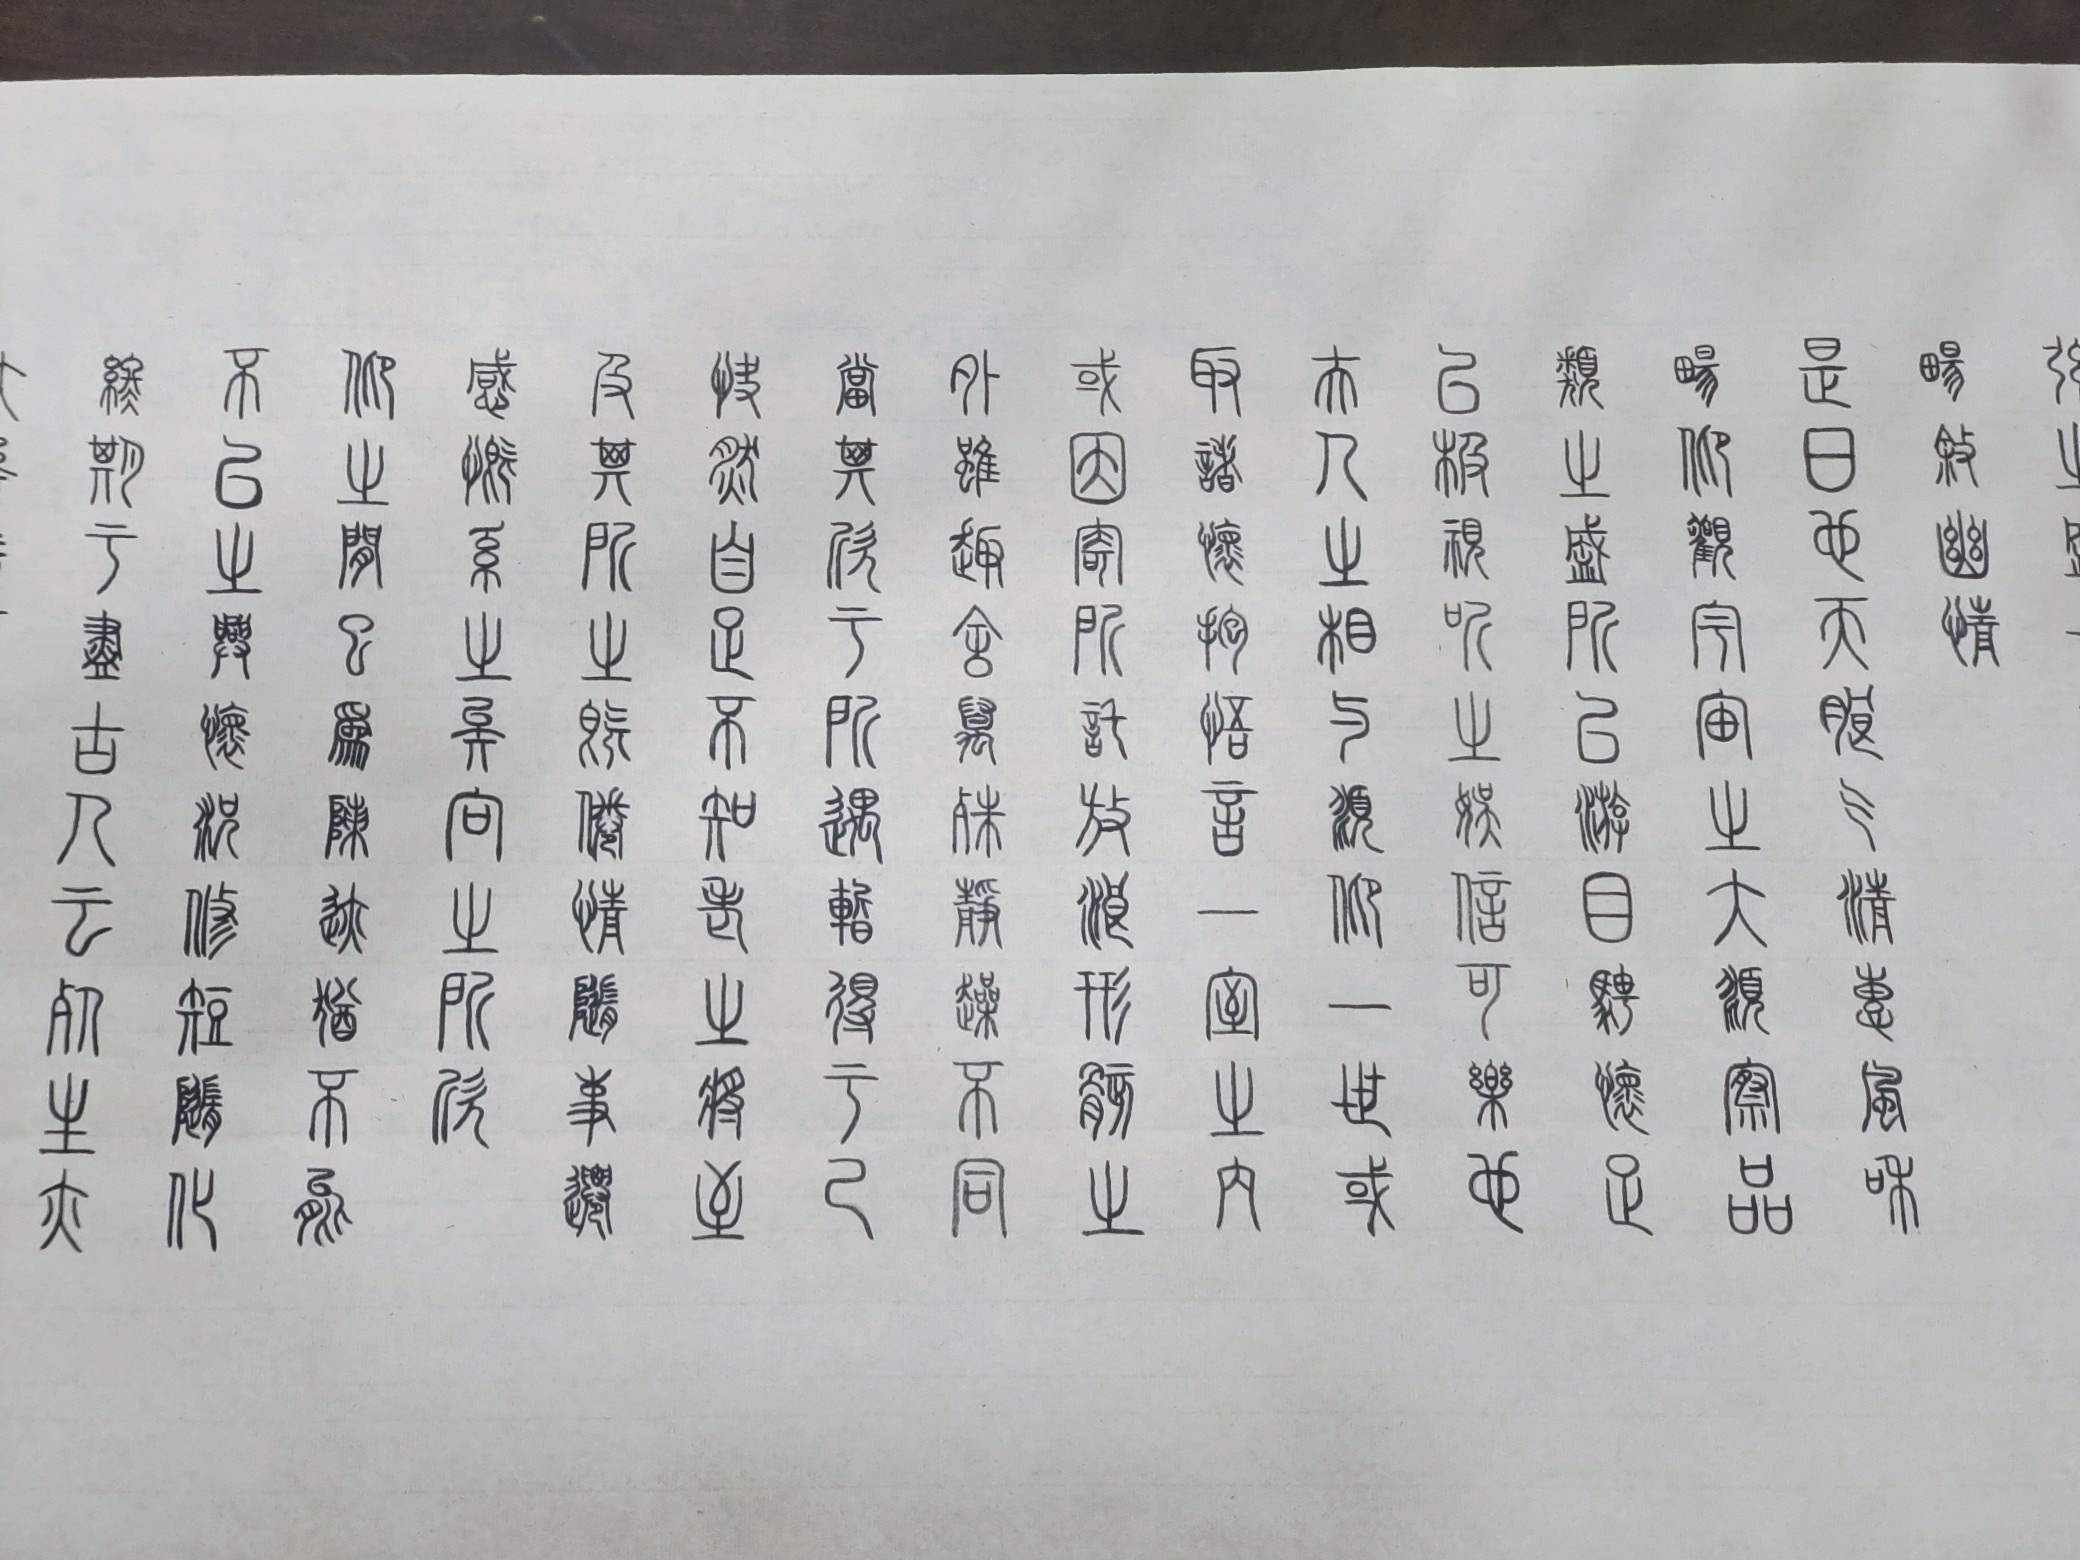 弦之盛一
暢敘幽情
是日也天朗氣清惠風和
暢仰觀宇宙之大俯察品
類之盛所以游目騁懷足
以極視聽之娛信可樂也
夫人之相與俯仰一世或
取諸懷抱悟言一室之內
或因寄所託放浪形骸之
外雖趣舍萬殊靜躁不同
當其欣于所遇暫得于己
快然自足不知老之將至
及其所之既倦情隨事遷
感慨系之矣向之所欣
仰之間以為陳迹猶不能
不以之興懷況修短隨化
終期于盡古人云死生亦